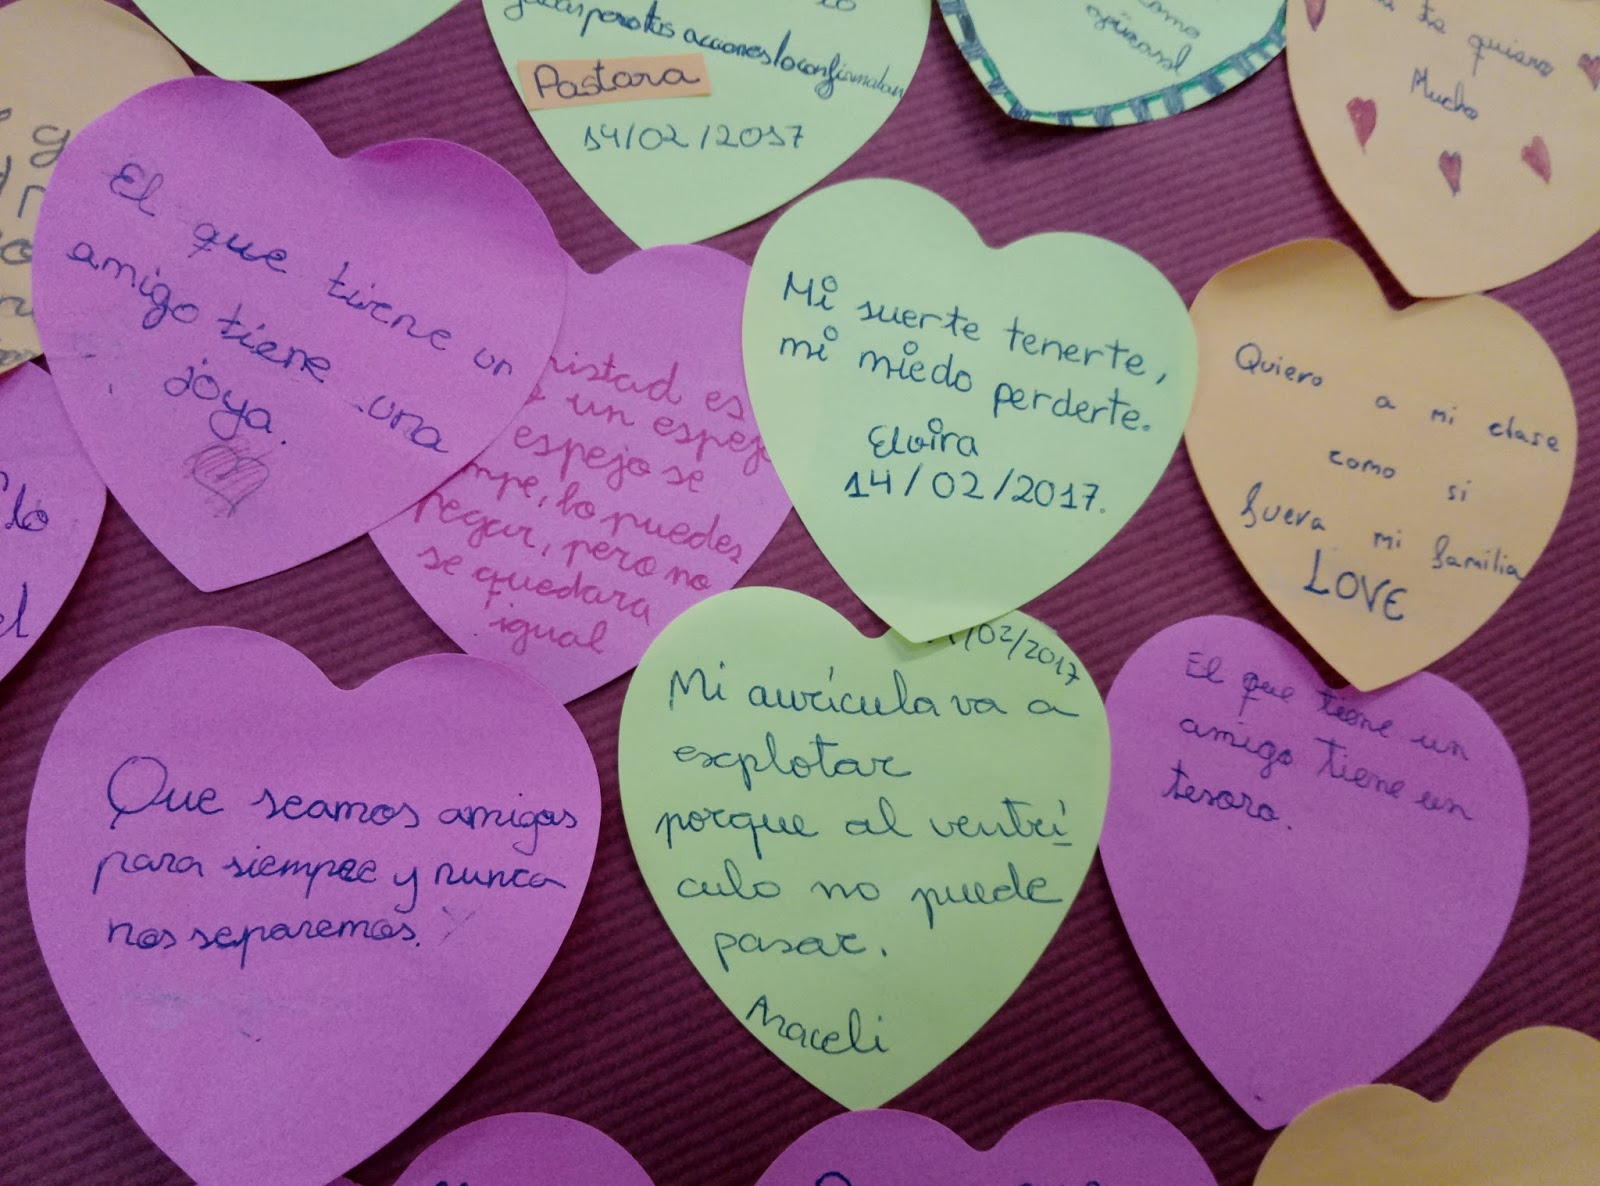 pero tus acciones lo confirmaban
Pastora
14/02/2017
como
te quiero
Mucho
El que tiene un
amigo tiene una
joya.
es
un espejo
espejo se
lo puedes
pegar, pero no
se quedara
igual
Mi suerte tenerte,
mi miedo perderte.
Elvira
14/02/2017.
Quiero a mi clase
como si
fuera mi familia
LOVE
Que seamos amigas
para siempre y nunca
nos separemos.
/02/2017
Mi aurícula va a
explotar
porque al ventrí
culo no puede
pasar.
Araceli
El que tiene un
amigo tiene un
tesoro.